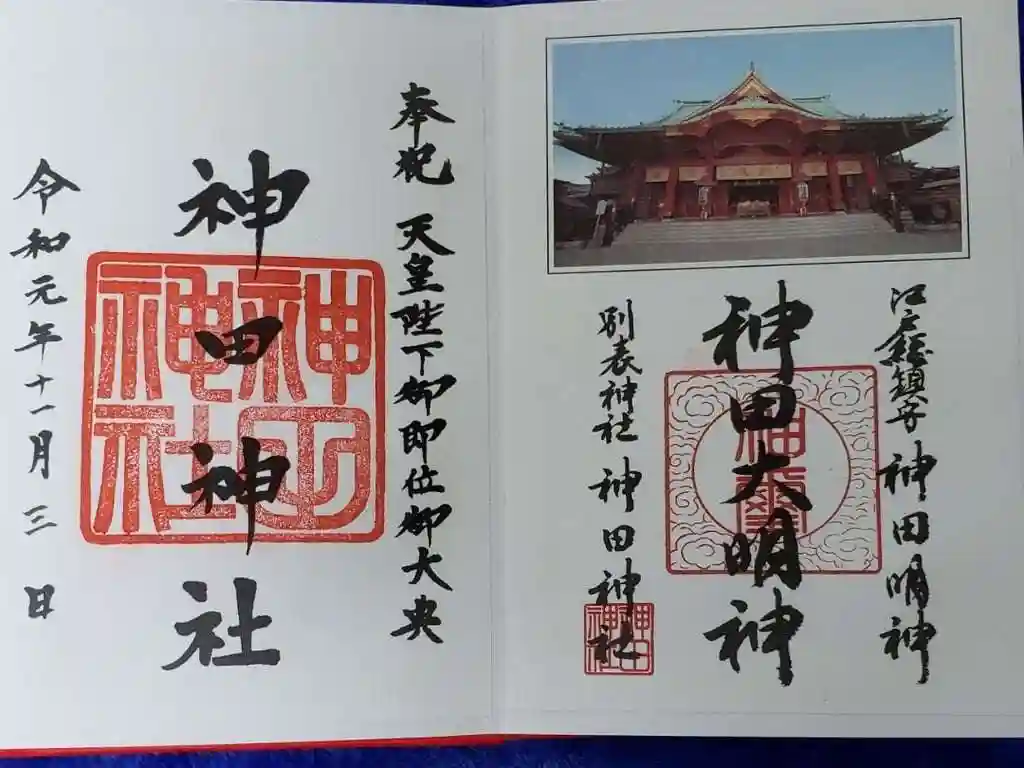 江戸総鎮守 神田明神
神田大明神
別表神社 神田神社
奉祝 天皇陛下御即位御大典
神田神社
令和元年十一月三日
神田神社